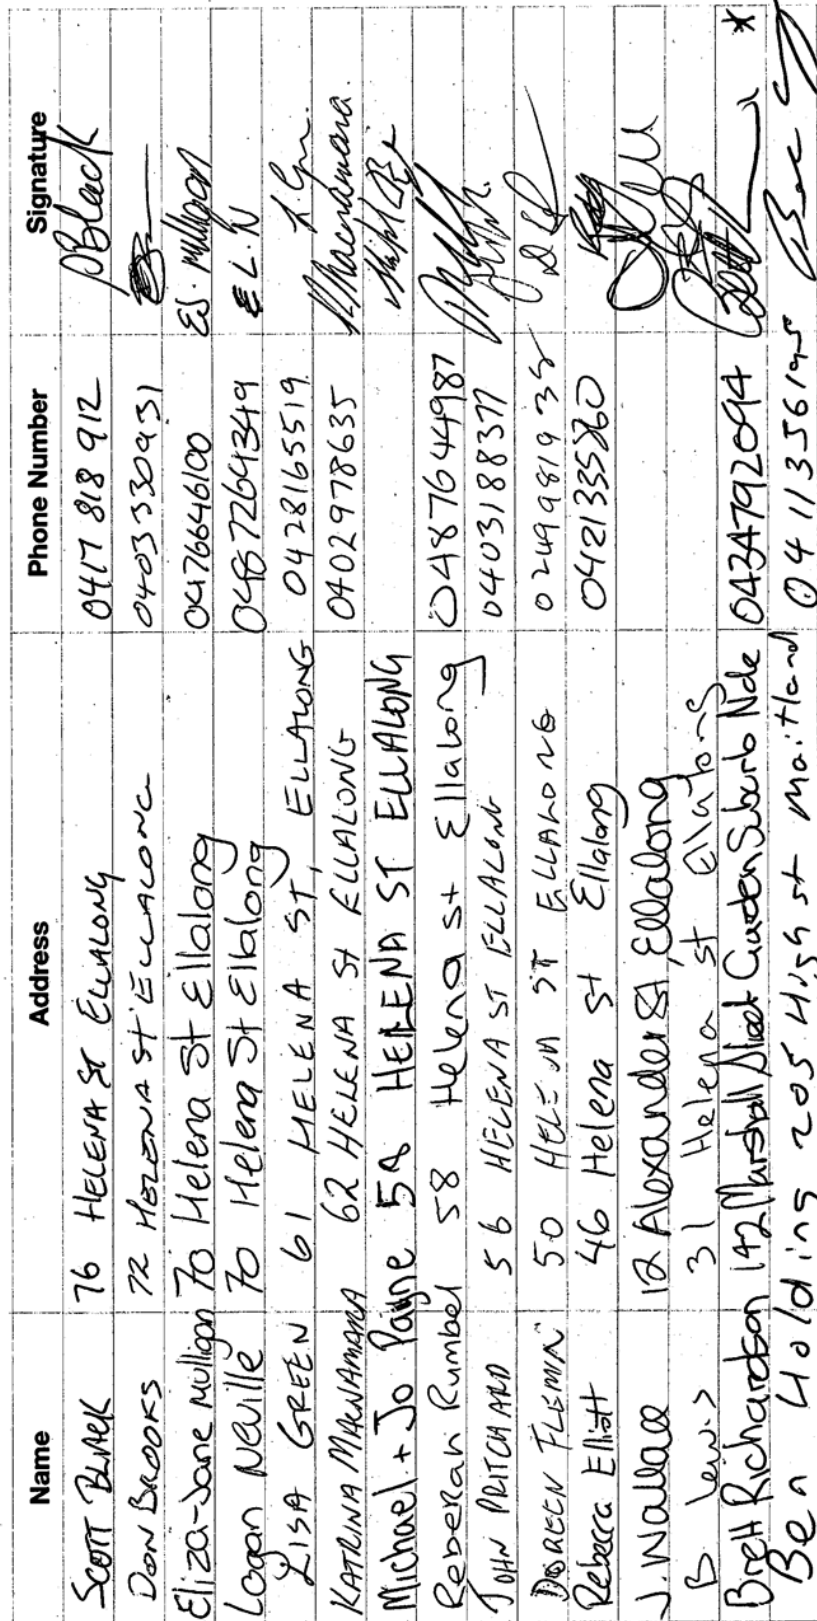 Name Address Phone Number Signature
SCOTT BLACK 76 HELENA ST ELLALONG 0417 818 912 SBlack
DON BROOKS 72 HELENA ST ELLALONG 0403330931
Eliza-Jane Mulligan 70 Helena St Ellalong 0476646100 EJ. Mulligan
Logan Neville 70 Helena St Ellalong 0487264349 L.N
LISA GREEN 61 HELENA ST, ELLALONG 0428165519
KATRINA MACNAMARA 62 HELENA St ELLALONG 0402978635 KMacnamara.
Michael + Jo Payne 58 HELENA ST ELLALONG
Rebekah Rumbel 58 Helena st Ellalong 0487644987
JOHN PRITCHARD 56 HELENA ST ELLALONG 0403188377
DOREEN FLEMIN 50 HELENA ST ELLALONG 0249981935
Rebecca Elliott 46 Helena st Ellalong 0421335860
J. Wallace 12 Alexander St, Ellalong
B. Lewis 31 Helena st Ellalong
Brett Richardson 142 Marshall Street Garden Suburb Ncle 0434792094 *
Ben Holding 205 High st Maitland 0411356195